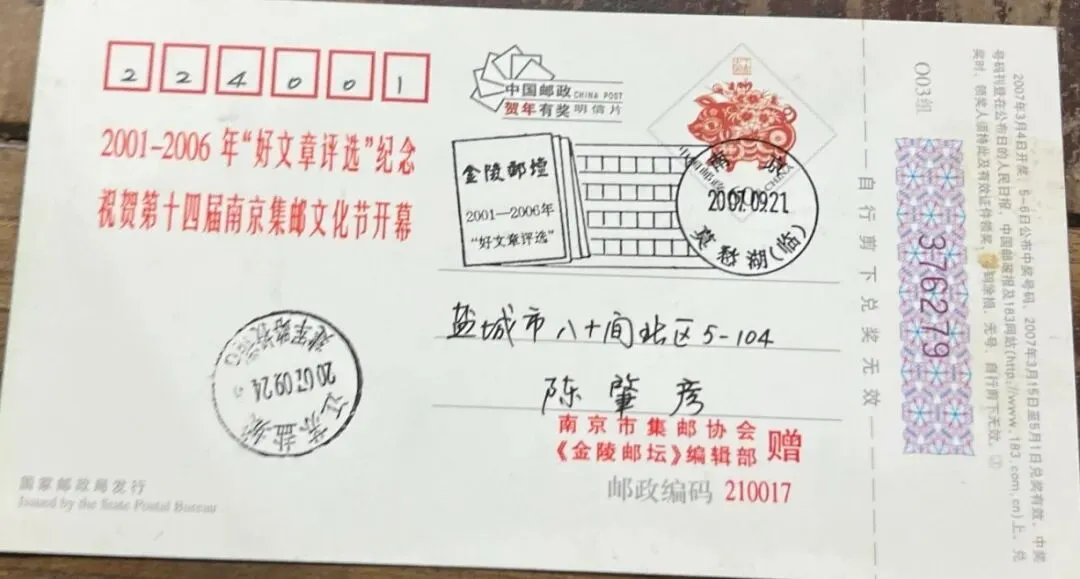 224001
2001-2006 年“好文章评选”纪念
祝贺第十四届南京集邮文化节开幕
中国邮政 CHINA POST
贺年有奖 明信片
金陵邮坛
2001—2006年
“好文章评选”
南京
2007.09.21
莫愁湖(临)
盐城市八十间北区5-104
陈肇彦
南京市集邮协会
《金陵邮坛》编辑部 赠
邮政编码 210017
江苏盐城
2007.09.24
国家邮政局发行
Issued by the State Postal Bureau
自行剪下兑奖无效
003组
376279
2007年3月4日开奖，5-6日公布中奖号码，2007年3月15日至5月1日兑奖有效。中奖
号码刊登在公布日的人民日报、中国邮政报及183网站(http://www.183.com.cn)上。兑
奖时，领奖人须持此及有效证件领奖，涂损、无号、自行剪下无效。